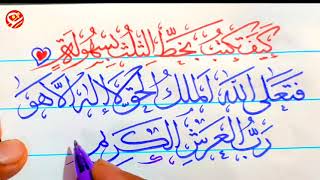 كَيْفَ تَكْتُبُ بِخَطِّ الثُّلُثِ بِسُهُولَةٍ
فَتَعَالَى اللّٰهُ الْمَلِكُ الْحَقُّ لَا إِلٰهَ إِلَّا هُوَ
رَبُّ الْعَرْشِ الْكَرِيمِ